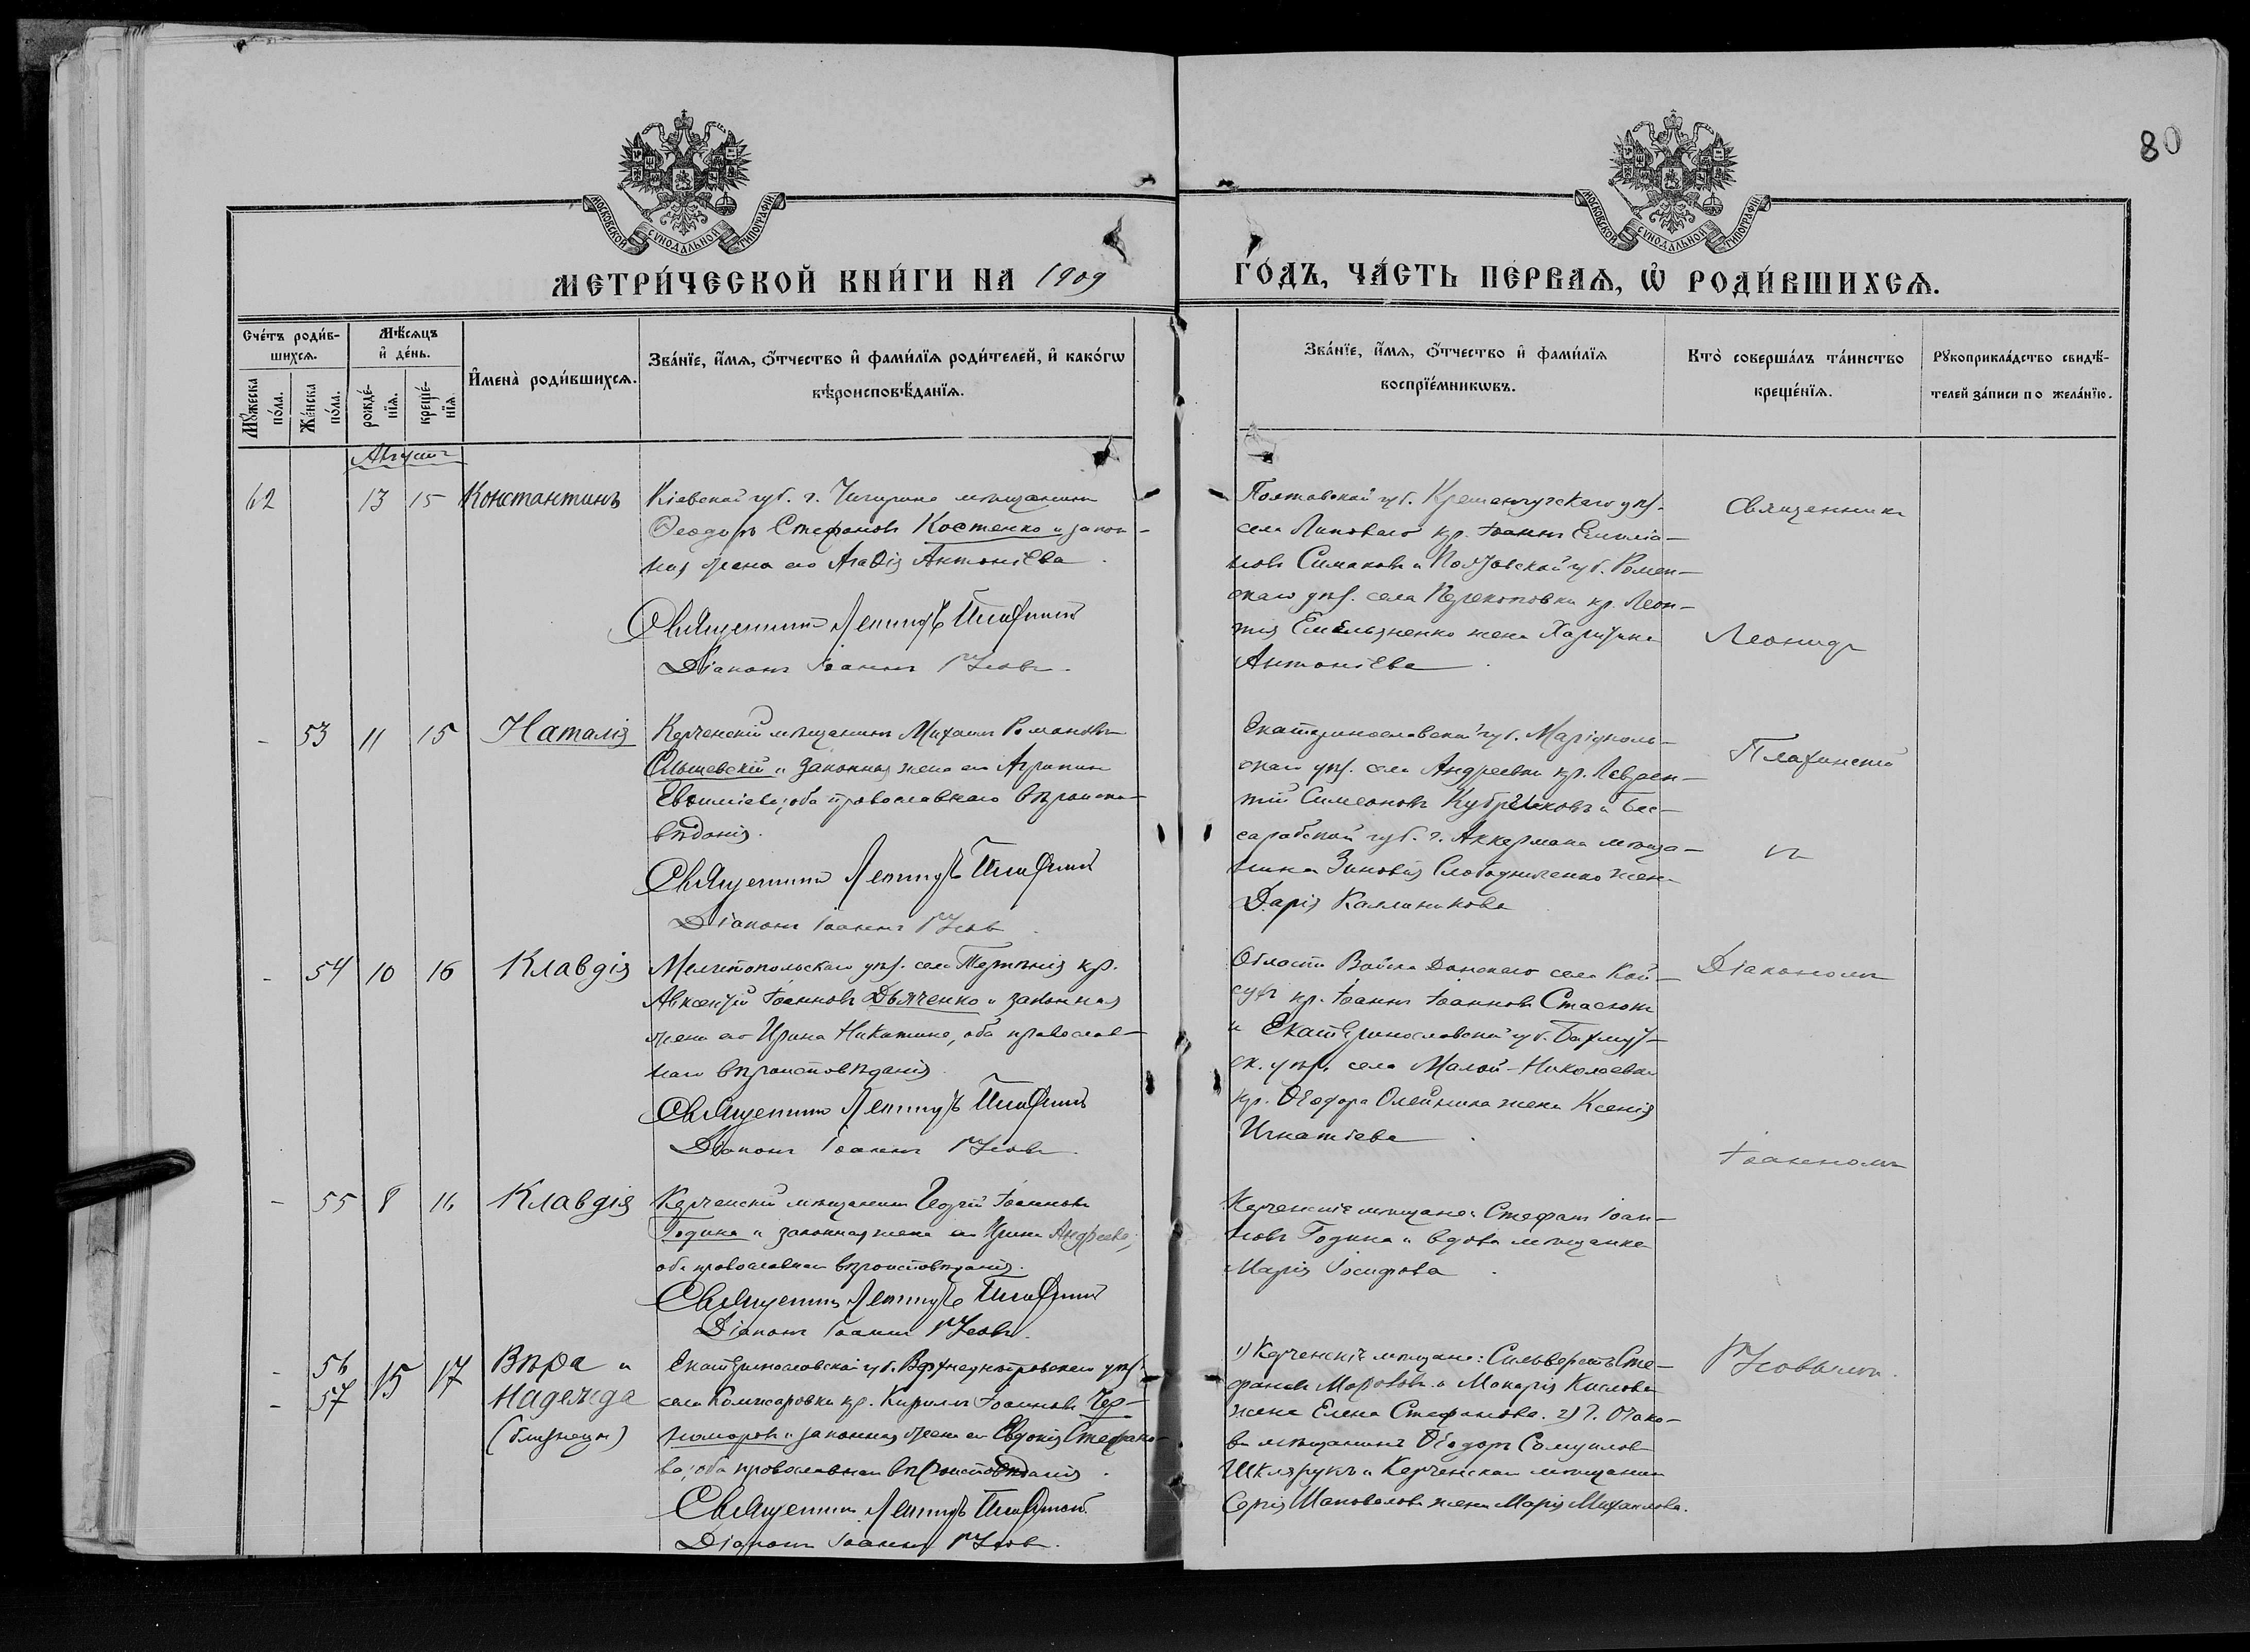 80
МОСКОВСКОЙ СѴНОДАЛЬНОЙ ТИПОГРАФІИ
МОСКОВСКОЙ СѴНОДАЛЬНОЙ ТИПОГРАФІИ
МЕТРИ́ЧЕСКОЙ КНИ́ГИ НА 1909
ГО́ДЪ, ЧА́СТЬ ПЕ́РВАѦ, Ѡ҆ РОДИ́ВШИХСѦ.
Сче́тъ роди́в-
шихсѧ.
Мꙋ́жеска по́ла.
Же́нска по́ла.
Мѣ́сѧцъ
и҆ де́нь.
рожде́-
нїѧ.
креще́-
нїѧ.
И҆мена̀ роди́вшихсѧ.
Зва́нїе, и҆́мѧ, ѻ҆́тчество и҆ фами́лїѧ роди́телей, и҆ како́гѡ
вѣроисповѣ́данїѧ.
Зва́нїе, и҆́мѧ, ѻ҆́тчество и҆ фами́лїѧ
воспрїе́мникѡвъ.
Кто̀ соверша́лъ та́инство
креще́нїѧ.
Рꙋкоприкла́дство свидѣ́-
телей за́писи по жела́нїю.
Августъ
62 13 15 Константинъ
Кіевской губ. г. Чигирина мѣщанинъ
Ѳеодоръ Стефановъ Костенко и закон-
ная жена его Агаѳія Антоніева.
Священникъ Леонидъ
Діаконъ Іоаннъ Усовъ.
Полтавской губ. Кременчугскаго уѣз.
села Липоваго кр. Іоаннъ Емилiа-
новъ Симаковъ и Полтавской губ. Ромен-
скаго уѣз. села Перекоповки кр. Леон-
тія Емельяненко жена Харитина
Антоніева.
Священникъ
Леонидъ
- 53 11 15 Наталія
Керченскій мѣщанинъ Михаилъ Романовъ
Ольшевскій и законная жена его Агрипина
Евѳиміева; оба православнаго вѣроиспо-
вѣданія.
Священникъ Леонидъ
Діаконъ Іоаннъ Усовъ.
Екатеринославской губ. Маріуполь-
скаго уѣз. села Андреевки кр. Лаврен-
тій Симеоновъ и Бес-
сарабской губ. г. Аккермана мѣща-
нина Зиновія Слободниченко жена
Дарія Каллиникова
съ
- 54 10 16 Клавдія
Мелитопольскаго уѣз. села Терпѣнія кр.
Авксентій Іоанновъ Дьяченко и законная
жена его Ирина Никитина, оба православ-
наго вѣроисповѣданія.
Священникъ Леонидъ
Діаконъ Іоаннъ Усовъ.
Области Войска Донскаго села Кой-
сугъ кр. Іоаннъ Іоанновъ Стасюкъ
и Екатеринославской губ. Бахмут-
ск. уѣз. села Малой-Николаевки
кр. Ѳеодора Олейника жена Ксенія
Игнатіева.
Діакономъ
Іоанномъ
- 55 8 16 Клавдія
Керченскій мѣщанинъ Георгій Іоанновъ
Година и законная жена его Ирина Андреева;
оба православнаго вѣроисповѣданія.
Священникъ Леонидъ
Діаконъ Іоаннъ Усовъ.
Керченскіе мѣщане: Стефанъ Іоан-
новъ Година и вдова мѣщанка
Марія Іосифова.
- 56
- 57
15 17 Вѣра и
Надежда
(близнецы)
Екатеринославской губ. Верхнеднѣпровскаго уѣз.
села Комисаровки кр. Кирилъ Іоанновъ Чер-
номоровъ и законная жена его Евдокія Стефано-
ва; оба православнаго вѣроисповѣданія.
Священникъ Леонидъ
Діаконъ Іоаннъ Усовъ.
1) Керченскіе мѣщане: Сильверстъ Сте-
фановъ Морозовъ и Макарія Кислова
жена Елена Стефанова. 2) Г. Очако-
ва мѣщанинъ Ѳеодоръ Самуиловъ
Шклярукъ и Керченскаго мѣщанина
Сергія Шаповалова жена Марія Михаилова.
Усовымъ.